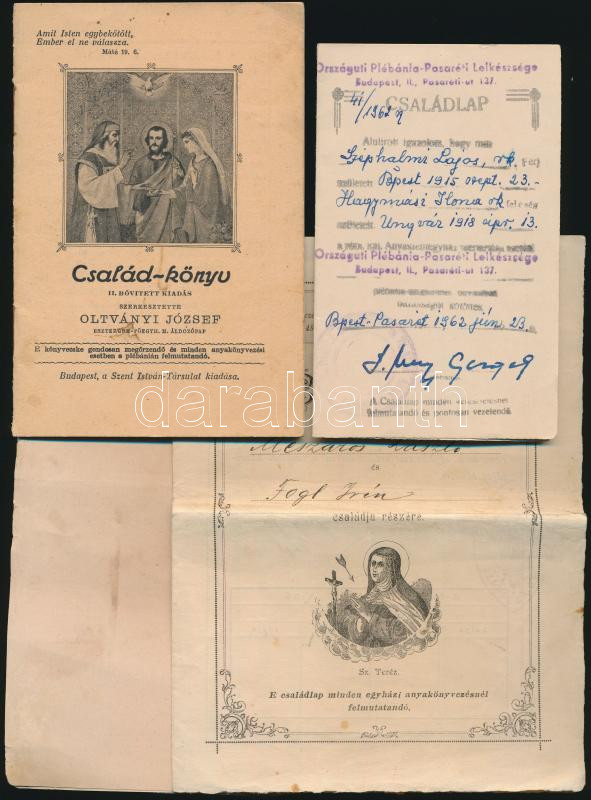 Amit Isten egybekötött,
Ember el ne válassza.
Máté 19. 6.
Család-könyv
II. BŐVITETT KIADÁS
SZERKESZTETTE
OLTVÁNYI JÓZSEF
ESZTERGOM-FŐEGYH. M. ÁLDOZÓPAP
E könyvecske gondosan megőrzendő és minden anyakönyvezési
esetben a plébánián felmutatandó.
Budapest, a Szent István-Társulat kiadása.
Országuti Plébánia-Pasaréti Lelkészsége
Budapest, II., Pasaréti-ut 137.
41/1962
CSALÁDLAP
Alulirott igazolom, hogy
Széphalmi Lajos, rk. férj
született Bpest 1915 szept. 23.-
Hagymási Ilona rk feleség
született Ungvár 1918 ápr. 13.
Országuti Plébánia-Pasaréti Lelkészsége
Budapest, II., Pasaréti-ut 137.
Bpest-Pasarét 1962 jún. 23.
A Családlap minden
felmutatandó és pontosan vezetendő.
Mészáros László
és
Fogl Irén
családja részére.
Sz. Teréz.
E családlap minden egyházi anyakönyvezésnél
felmutatandó.
darabanth